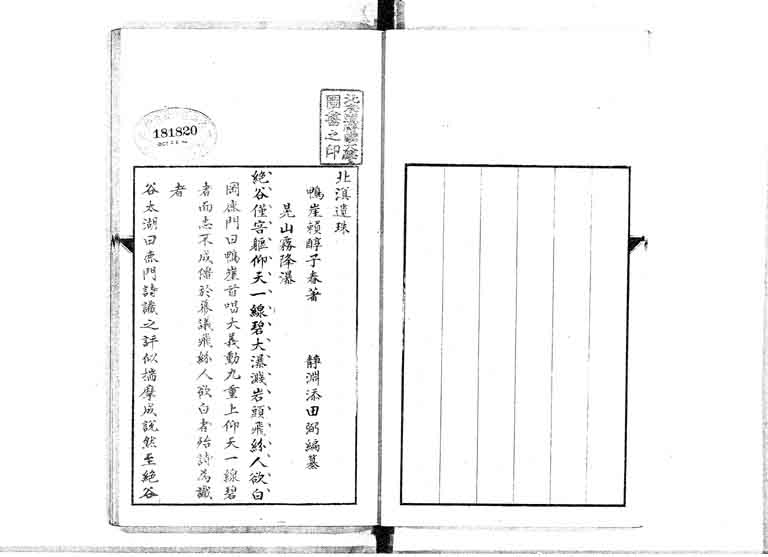 北溟遺珠
鴨崖頼醇子春著　靜淵添田弼編纂
晃山霧降瀑
絶谷僅容軀仰天一線碧大瀑濺岩頭飛絲人欲白
岡鹿門曰鴨崖首唱大義動九重上仰天一線碧
者而志不成僇於幕議飛絲人欲白者殆詩為讖
者
谷太湖曰鹿門詩讖之評似揣摩成說然至絶谷
圖書之印
181820